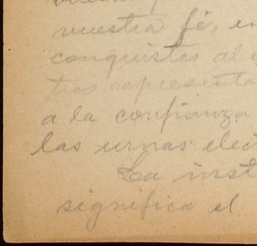 vuestra fé, en
conquistas al
tros representa
a la confianza
las urnas elec
La inst
significa el